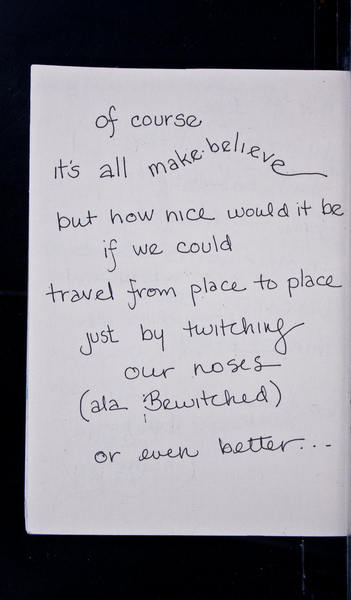 of course
it's all make-believe
but how nice would it be
if we could
travel from place to place
just by twitching
our noses
(ala Bewitched)
or even better...